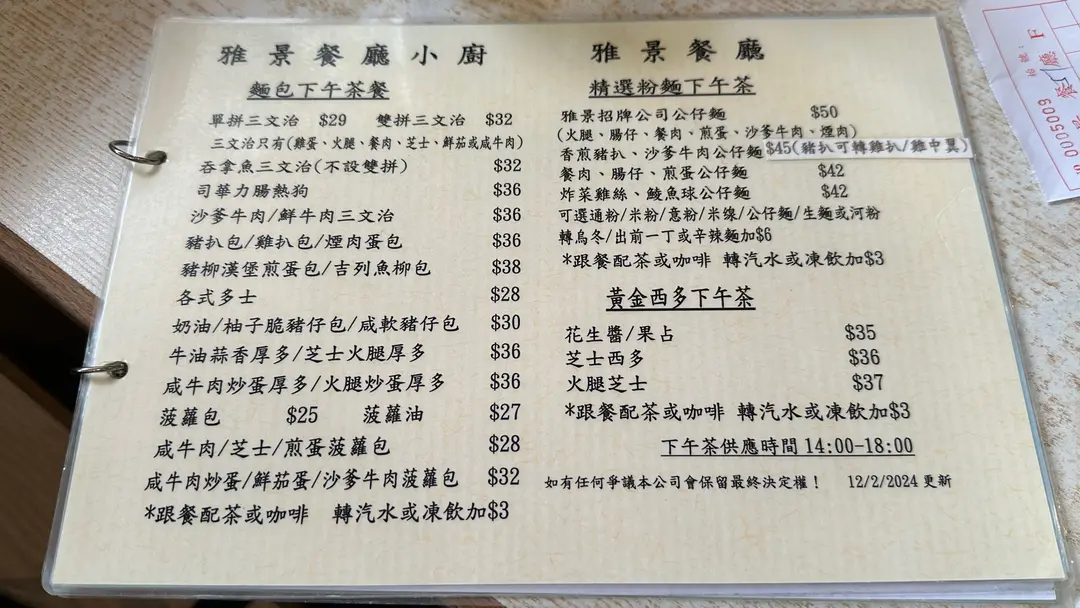 雅景餐廳小廚
麵包下午茶餐
單拼三文治 $29 雙拼三文治 $32
三文治只有(雞蛋、火腿、餐肉、芝士、鮮茄或咸牛肉)
吞拿魚三文治(不設雙拼) $32
司華力腸熱狗 $36
沙爹牛肉/鮮牛肉三文治 $36
豬扒包/雞扒包/煙肉蛋包 $36
豬柳漢堡煎蛋包/吉列魚柳包 $38
各式多士 $28
奶油/柚子脆豬仔包/咸軟豬仔包 $30
牛油蒜香厚多/芝士火腿厚多 $36
咸牛肉炒蛋厚多/火腿炒蛋厚多 $36
菠蘿包 $25 菠蘿油 $27
咸牛肉/芝士/煎蛋菠蘿包 $28
咸牛肉炒蛋/鮮茄蛋/沙爹牛肉菠蘿包 $32
*跟餐配茶或咖啡 轉汽水或凍飲加$3
雅景餐廳
精選粉麵下午茶
雅景招牌公司公仔麵 $50
(火腿、腸仔、餐肉、煎蛋、沙爹牛肉、煙肉)
香煎豬扒、沙爹牛肉公仔麵 $45(豬扒可轉雞扒/雞中翼)
餐肉、腸仔、煎蛋公仔麵 $42
炸菜雞絲、鯪魚球公仔麵 $42
可選通粉/米粉/意粉/米線/公仔麵/生麵或河粉
轉烏冬/出前一丁或辛辣麵加$6
*跟餐配茶或咖啡 轉汽水或凍飲加$3
黃金西多下午茶
花生醬/果占 $35
芝士西多 $36
火腿芝士 $37
*跟餐配茶或咖啡 轉汽水或凍飲加$3
下午茶供應時間 14:00-18:00
如有任何爭議本公司會保留最終決定權！ 12/2/2024 更新
0005009